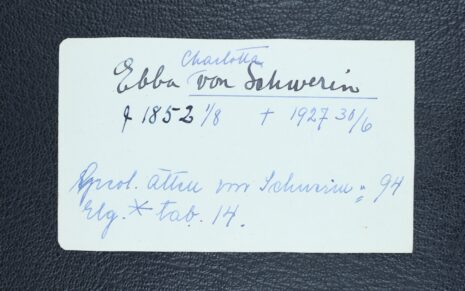 Charlotta
Ebba von Schwerin
f 1852 1/8 + 1927 30/6
ätten von Schwerin 94
Elg. * tab. 14.